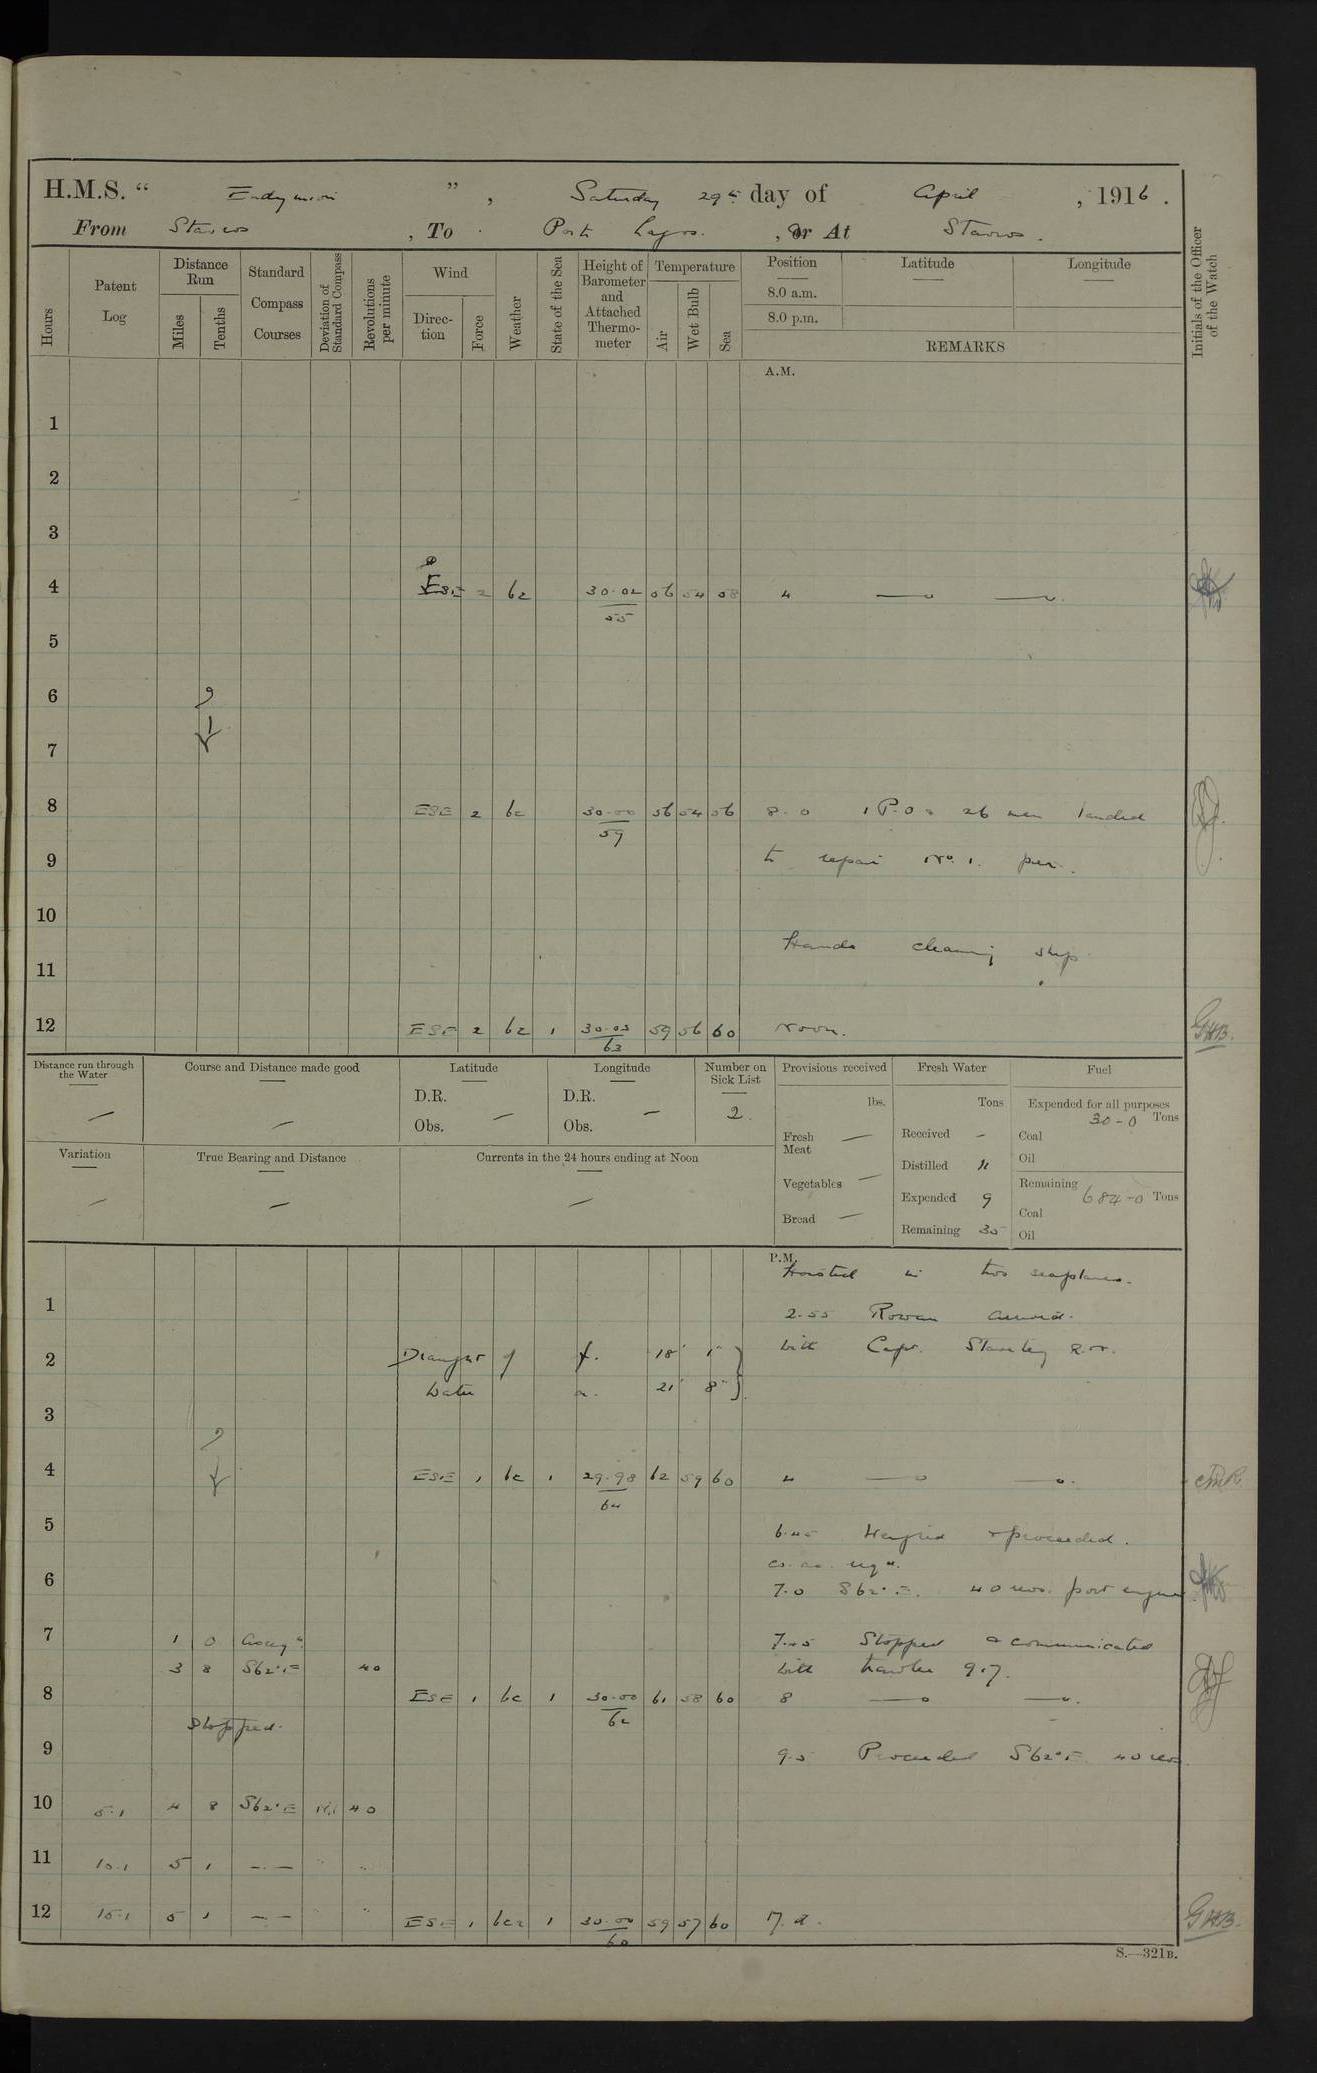 H.M.S. “ Endymion ” , Saturday 29th day of April , 1916 .
From Stavros , To Port Lagos. , Or At Stavros .
Hours
Patent Log
Distance Run
Miles
Tenths
Standard Compass Courses
Deviation of Standard Compass
Revolutions per minute
Wind
Direc-tion
Force
Weather
State of the Sea
Height of Barometer and Attached Thermo-meter
Temperature
Air
Wet Bulb
Sea
Position
8.0 a.m.
8.0 p.m.
Latitude
Longitude
REMARKS
Initials of the Officer of the Watch
A.M.
1
2
3
4 ESE 2 bc 30.02 56 54 58 4
55
5
6
7
8 ESE 2 bc 30.00 56 54 56 8.0 1 P.O & 26 men landed
59
9 to repair No. 1. pier.
10
Hands cleaning ship
11
12 ESE 2 bc 1 30.03 59 56 60 Noon. GHB.
63
Distance run through the Water
—
Course and Distance made good
—
Latitude
D.R.
Obs. —
Longitude
D.R.
Obs. —
Number on Sick List
2
Provisions received
lbs.
Fresh Meat —
Vegetables —
Bread —
Fresh Water
Tons
Received -
Distilled 11
Expended 9
Remaining 35
Fuel
Expended for all purposes
30-0 Tons
Coal
Oil
Remaining
684-0 Tons
Coal
Oil
Variation
—
True Bearing and Distance
—
Currents in the 24 hours ending at Noon
—
P.M.
Hoisted in two seaplanes.
1
2.55 Rowan arrived.
with Capt. Stanley R.N.
2 Draught of f. 18' 1"
water a. 21' 8"
3
4 ESE 1 bc 1 29.98 62 59 60 4
64
5
6.45 Weighed & proceeded.
co. as req'd.
6
7.0 S62°E. 40 revs. port engine
7 1 0 As req'd 7.45 Stopped & communicated
3 8 S62°E 40 with trawler 917.
8 ESE 1 bc 1 30.00 61 58 60 8
62
Stopped.
9
9.5 Proceeded S62°E 40 revs.
10 5.1 4 8 S62°E 40
11 10.1 5 1 — —
12 15.1 5 1 — — ESE 1 bcz 1 30.00 59 57 60 M.d. GHB.
60
S.—321B.